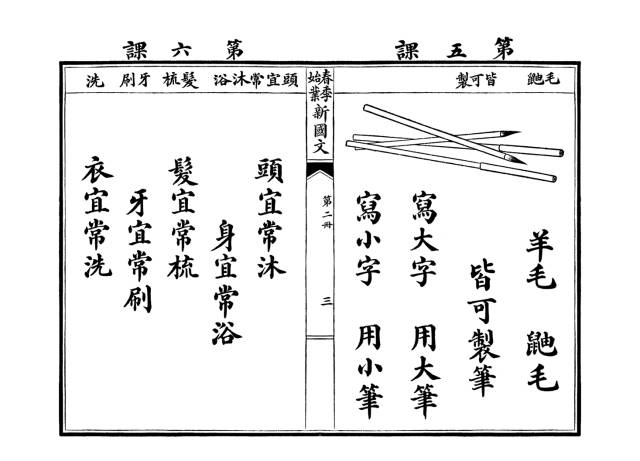 第五課
毛鼬 皆可製
羊毛 鼬毛
皆可製筆
寫大字 用大筆
寫小字 用小筆
春季始業新國文
第二冊
三
第六課
頭宜常沐浴 髮梳 牙刷 洗
頭宜常沐
身宜常浴
髮宜常梳
牙宜常刷
衣宜常洗